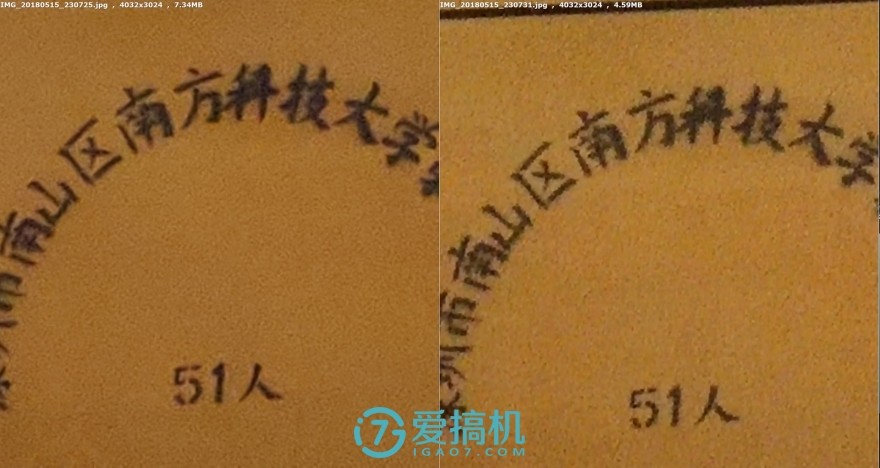 IMG_20180515_230725.jpg , 4032x3024 , 7.34MB
圳市南山区南方科技大学
51人
IMG_20180515_230731.jpg , 4032x3024 , 4.59MB
深圳市南山区南方科技大学
51人
爱搞机
IGAO7.COM